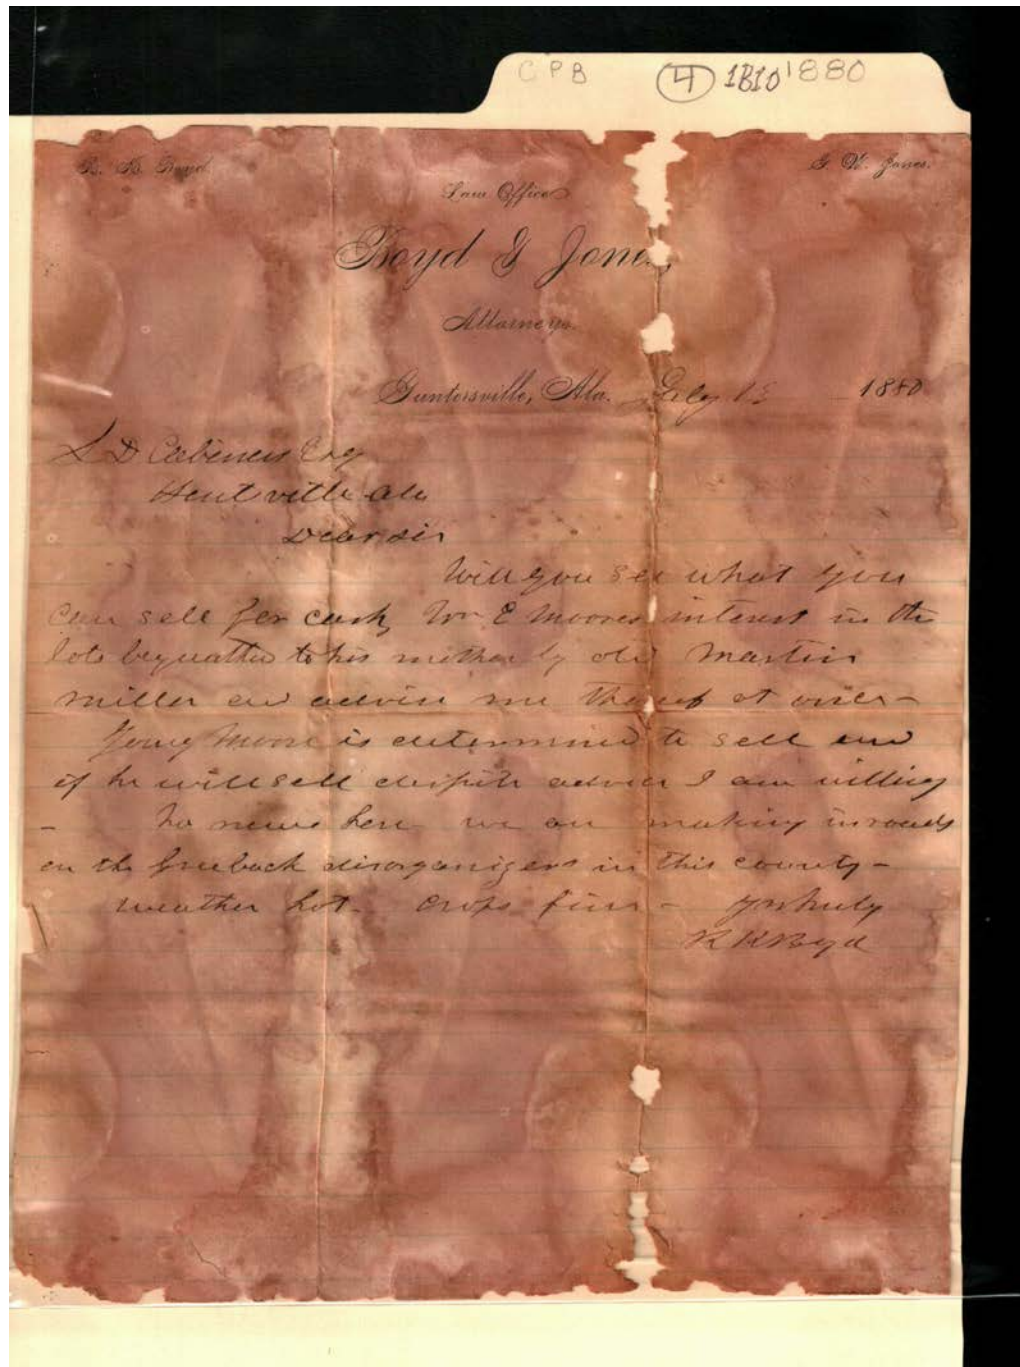 C P B (4) 1B10 1880
R. K. Boyd. G. W. Jones.
Law Office
Boyd & Jones,
Attorneys.
Guntersville, Ala. July 13 1880
S D Cabiness Esq
Huntsville Ala
Dear sir
Will you see what you
can sell for cash, Wm E Moores interest in the
lots bequathe to his mother by old Martin
Miller and advise me thereof at once -
Young Moore is determined to sell and
if he will sell despite advice I am willing
- No news here we are making inroads
on the greeback disorganizers in this county -
weather hot. Crops fine - Yrs truly
R K Boyd